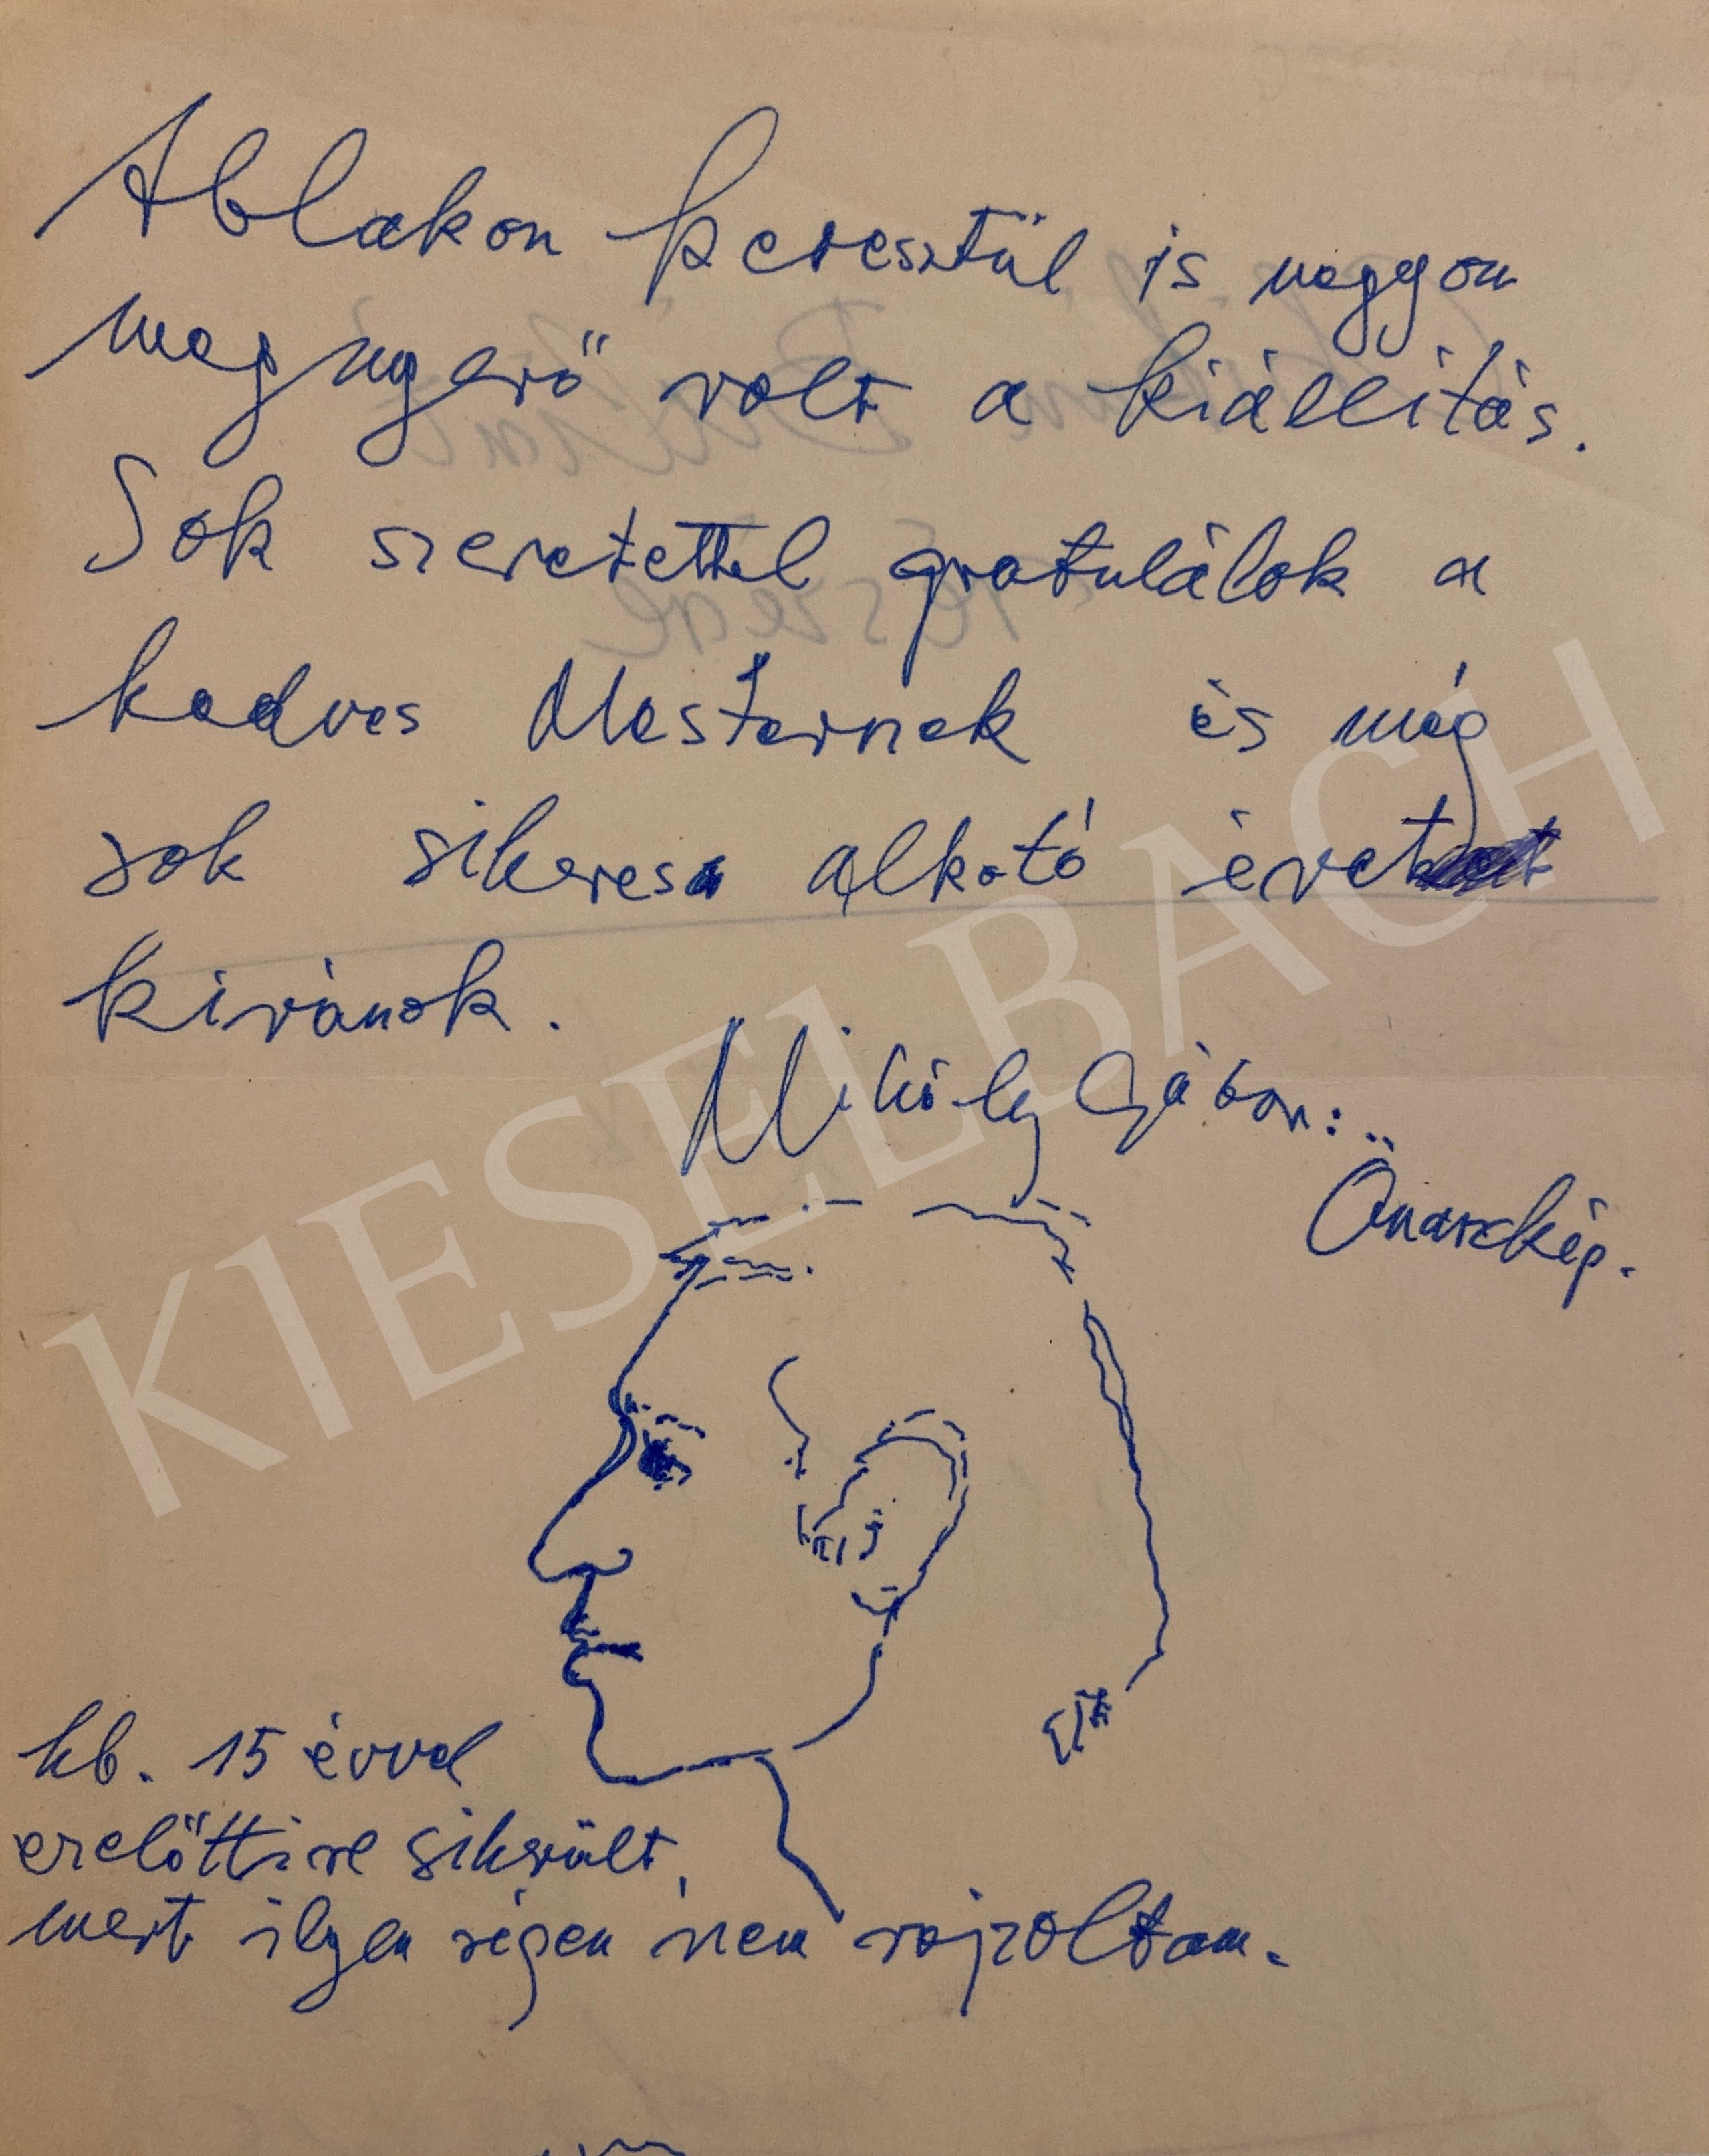 Ablakon keresztül is nagyon
megnyerő volt a kiállitás.
Sok szeretettel gratulálok a
kedves Mesternek és még
sok sikeres alkotó évet
kivánok.
Mihály Gábor:
Önarckép.
kb. 15 évvel
ezelőttire sikerült,
mert ilyen régen nem rajzoltam.
KIESELBACH